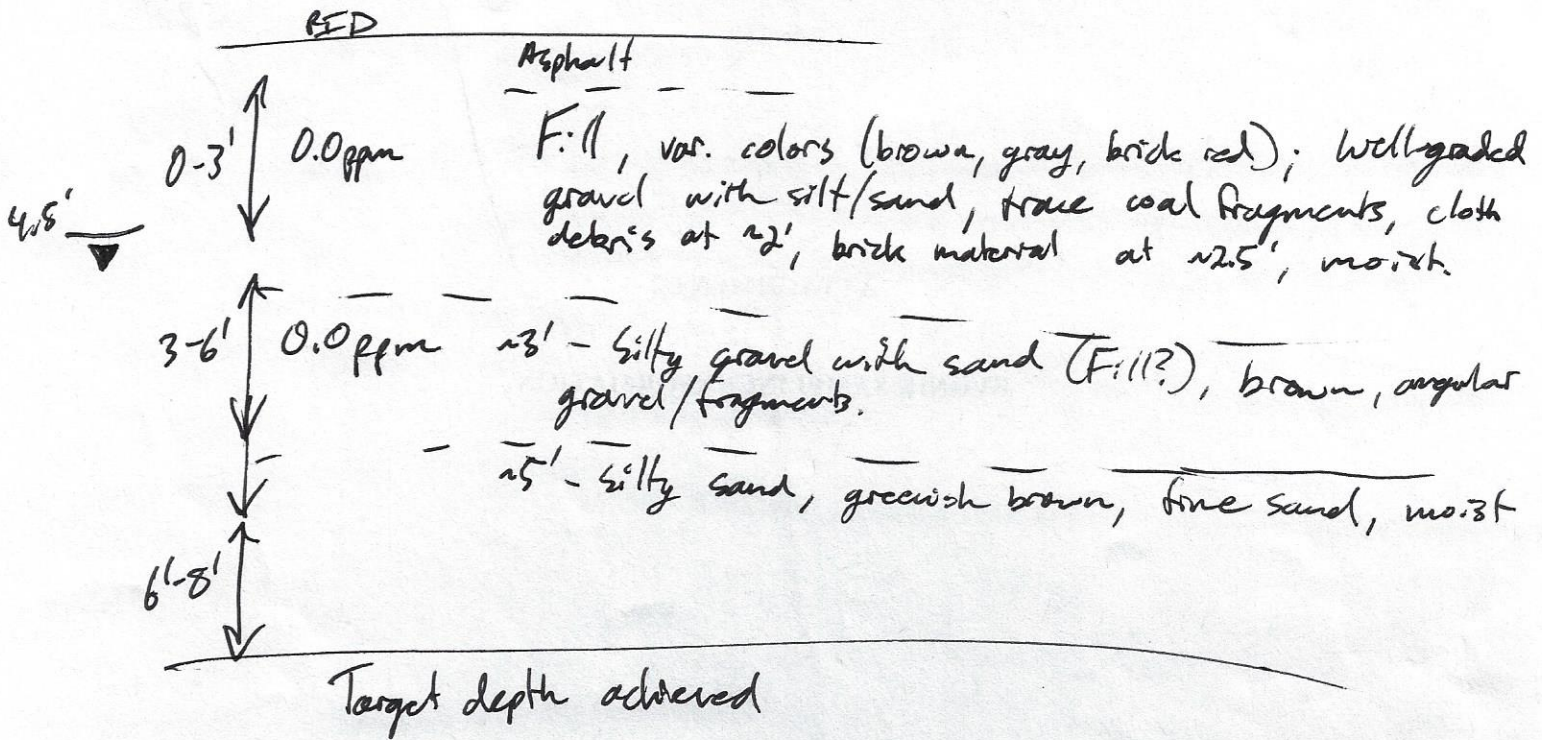 PID
Asphalt
0-3' 0.0ppm Fill, var. colors (brown, gray, brick red); Well-graded
gravel with silt/sand, trace coal fragments, cloth
4.5'
debris at ~2', brick material at ~2.5', moist.
3-6' 0.0ppm ~3' - Silty gravel with sand (Fill?), brown, angular
gravel/fragments.
~5' - Silty sand, greenish brown, fine sand, moist
6'-8'
Target depth achieved